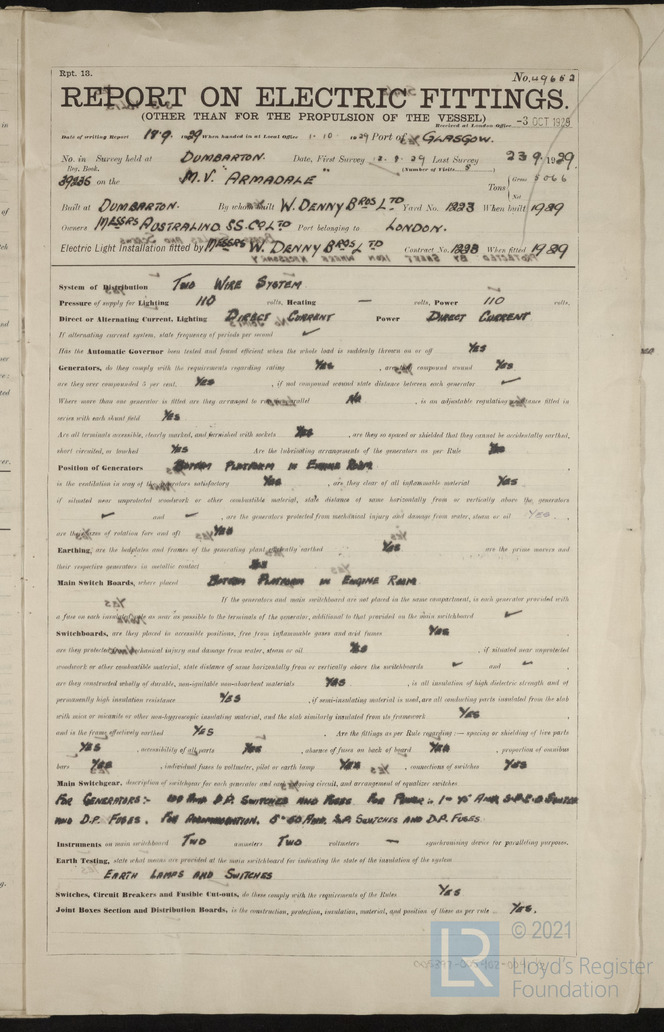 Rpt. 13.
No. 49652
REPORT ON ELECTRIC FITTINGS.
(OTHER THAN FOR THE PROPULSION OF THE VESSEL)
Received at London Office -3 OCT 1929
Date of writing Report 18.9. 1929 When handed in at Local Office 1. 10. 1929 Port of GLASGOW.
No. in Survey held at DUMBARTON. Date, First Survey 12. 9. 29 Last Survey 23.9.1929.
Reg. Book. (Number of Visits 5)
39236 on the M.V. ARMADALE Tons Gross 5066
Net
Built at DUMBARTON. By whom built W. DENNY BROS LTD Yard No. 1223 When built 1929
Owners MESSRS AUSTRALIND S.S. CO LTD Port belonging to LONDON.
Electric Light Installation fitted by MESSRS W. DENNY BROS LTD Contract No. 1238 When fitted 1929
System of Distribution TWO WIRE SYSTEM
Pressure of supply for Lighting 110 volts, Heating — volts, Power 110 volts.
Direct or Alternating Current, Lighting DIRECT CURRENT Power DIRECT CURRENT
If alternating current system, state frequency of periods per second ✓
Has the Automatic Governor been tested and found efficient when the whole load is suddenly thrown on or off YES
Generators, do they comply with the requirements regarding rating YES, are they compound wound YES
are they over compounded 5 per cent. YES, if not compound wound state distance between each generator ✓
Where more than one generator is fitted are they arranged to run in parallel No, is an adjustable regulating resistance fitted in
series with each shunt field YES
Are all terminals accessible, clearly marked, and furnished with sockets YES, are they so spaced or shielded that they cannot be accidentally earthed,
short circuited, or touched YES Are the lubricating arrangements of the generators as per Rule YES
Position of Generators BOTTOM PLATFORM IN ENGINE ROOM
is the ventilation in way of the generators satisfactory YES, are they clear of all inflammable material YES
if situated near unprotected woodwork or other combustible material, state distance of same horizontally from or vertically above the generators
✓ and ✓, are the generators protected from mechanical injury and damage from water, steam or oil YES.
are the axes of rotation fore and aft YES
Earthing, are the bedplates and frames of the generating plant efficiently earthed YES are the prime movers and
their respective generators in metallic contact YES
Main Switch Boards, where placed BOTTOM PLATFORM IN ENGINE ROOM
If the generators and main switchboard are not placed in the same compartment, is each generator provided with
a fuse on each insulated pole as near as possible to the terminals of the generator, additional to that provided on the main switchboard ✓
Switchboards, are they placed in accessible positions, free from inflammable gases and acid fumes YES
are they protected from mechanical injury and damage from water, steam or oil YES, if situated near unprotected
woodwork or other combustible material, state distance of same horizontally from or vertically above the switchboards ✓ and ✓
are they constructed wholly of durable, non-ignitable non-absorbent materials YES, is all insulation of high dielectric strength and of
permanently high insulation resistance YES, if semi-insulating material is used, are all conducting parts insulated from the slab
with mica or micanite or other non-hygroscopic insulating material, and the slab similarly insulated from its framework YES
and is the frame effectively earthed YES. Are the fittings as per Rule regarding :— spacing or shielding of live parts
YES, accessibility of all parts YES, absence of fuses on back of board YES, proportion of omnibus
bars YES, individual fuses to voltmeter, pilot or earth lamp YES, connections of switches YES
Main Switchgear, description of switchgear for each generator and each outgoing circuit, and arrangement of equalizer switches
FOR GENERATORS:- 100 AMP D.P. SWITCHES AND FUSES FOR POWER:
AND D.P. FUSES. FOR ACCOMMODATION. 5-60 AMP. S.P. SWITCHES AND D.P. FUSES
Instruments on main switchboard TWO ammeters TWO voltmeters — synchronising device for paralleling purposes.
Earth Testing, state what means are provided at the main switchboard for indicating the state of the insulation of the system
EARTH LAMPS AND SWITCHES
Switches, Circuit Breakers and Fusible Cut-outs, do these comply with the requirements of the Rules YES
Joint Boxes Section and Distribution Boards, is the construction, protection, insulation, material, and position of these as per rule YES.
LR © 2021
Lloyd's Register
Foundation